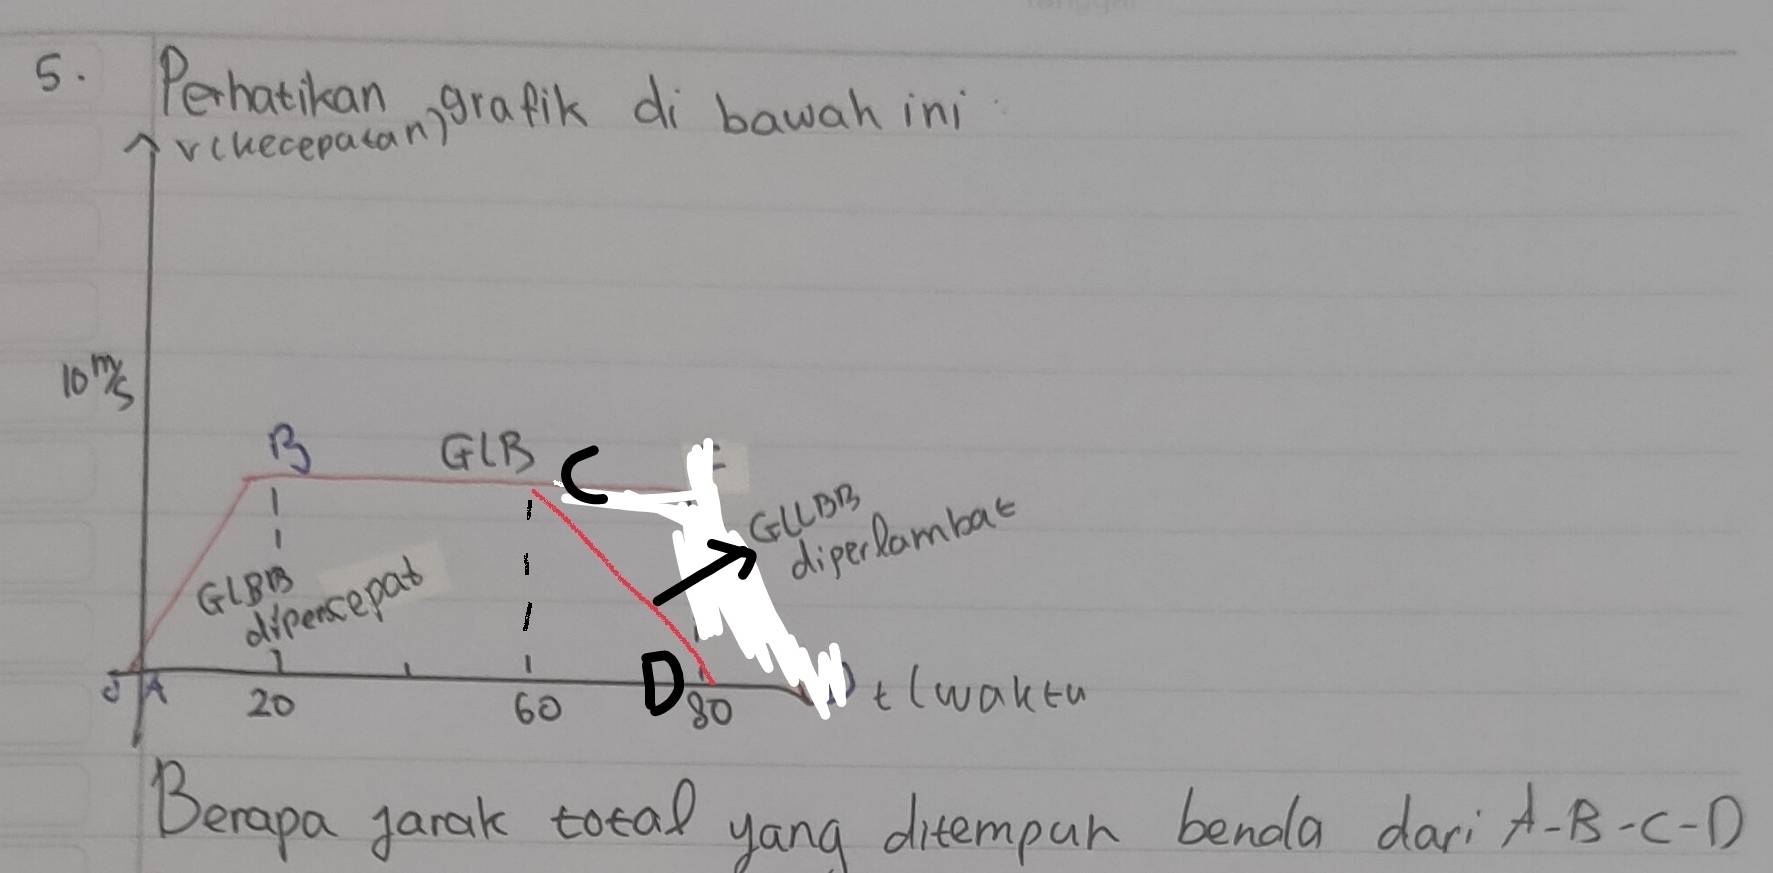 5. Perhatikan grafik di bawah ini
v(kecepatan)
10 m/s
B GLB C
GLBB
dipercepat
GLLBB
diperlambat
A 20 60 D 80 t (waktu
Berapa jarak total yang ditempuh benda dari A-B-C-D